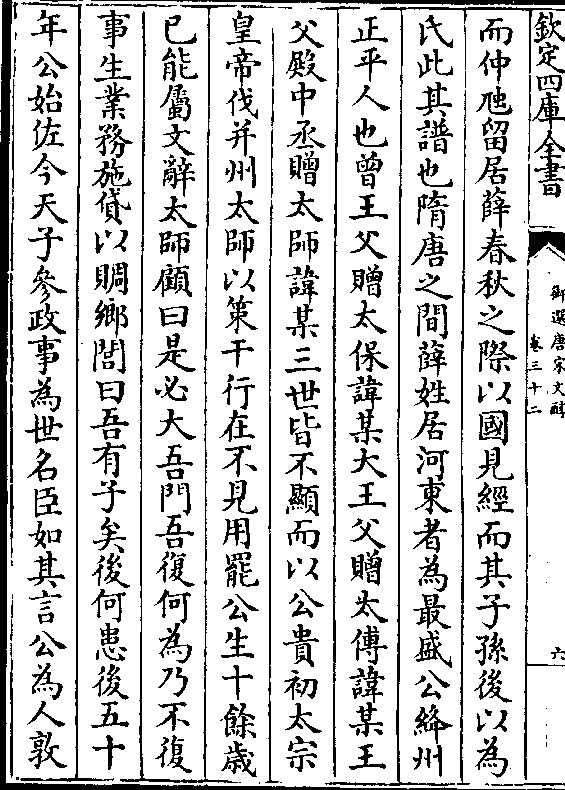 欽定四庫全書
御選唐宋文醇
卷三十二
六
而仲虺留居薛春秋之際以國見經而其子孫後以為
氏此其譜也隋唐之間薛姓居河東者為最盛公絳州
正平人也曾王父贈太保諱某大王父贈太傅諱某王
父殿中丞贈太師諱某三世皆不顯而以公貴初太宗
皇帝伐并州太師以策干行在不見用罷公生十餘歲
已能屬文辭太師顧曰是必大吾門吾復何為乃不復
事生業務施貸以賙鄉閭曰吾有子矣後何患後五十
年公始佐今天子參政事為世名臣如其言公為人敦